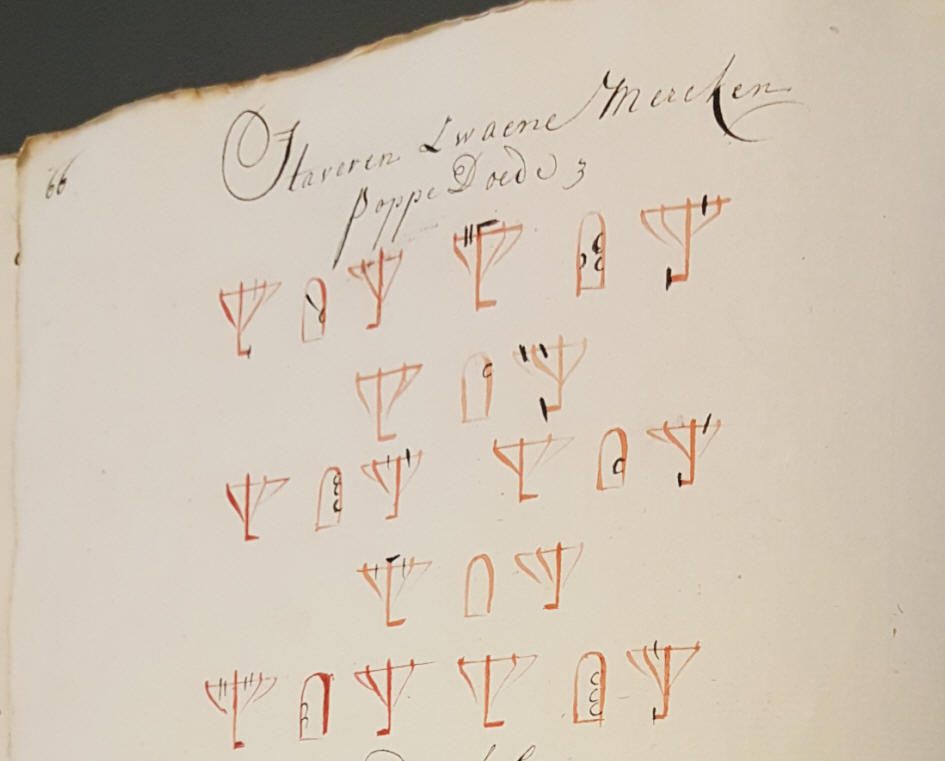 66
Staveren Zwaene Mercken
Poppe Doedes